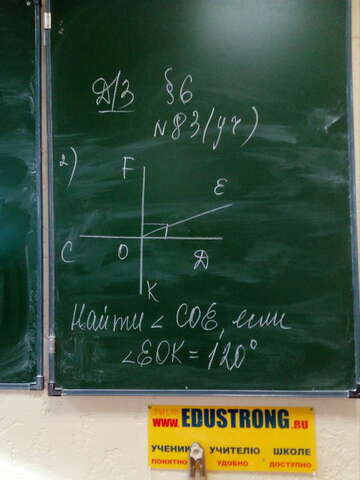 Д/З §6
N83(уч)
2)
F
E
C
O
D
K
Найти ∠ COE, если
∠EOK = 120°
www.EDUSTRONG.RU
УЧЕНИКУ УЧИТЕЛЮ ШКОЛЕ
ПОНЯТНО УДОБНО ДОСТУПНО